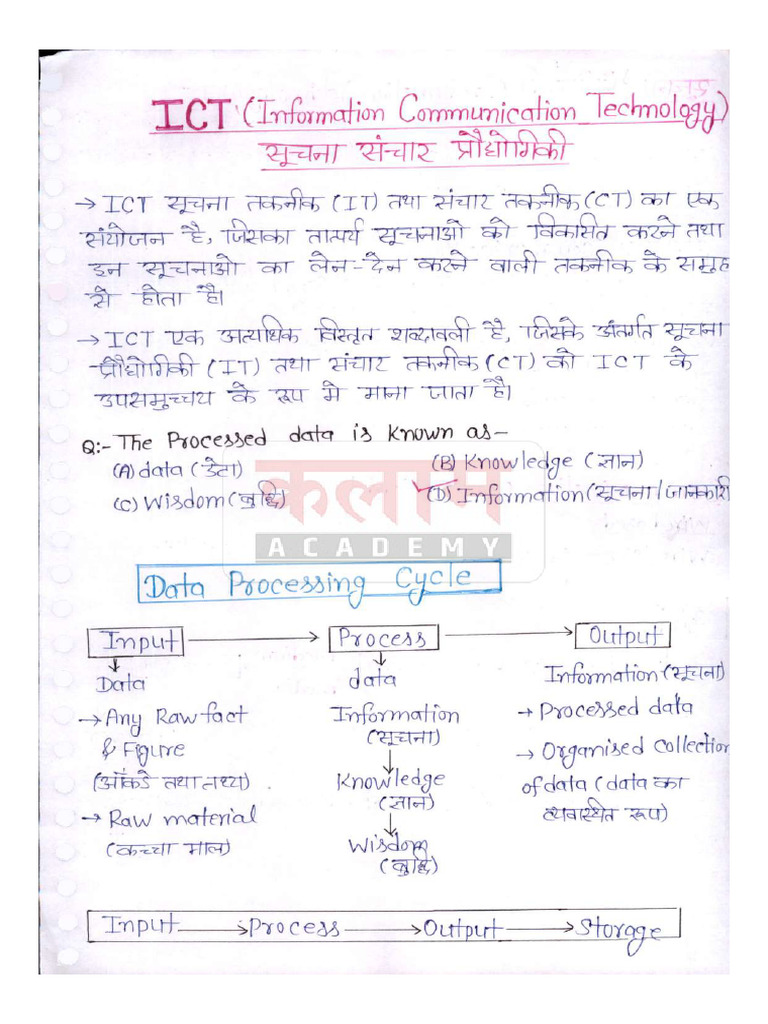 ICT (Information Communication Technology)
सूचना संचार प्रौद्योगिकी
→ ICT सूचना तकनीक (IT) तथा संचार तकनीक (CT) का एक
संयोजन है, जिसका तात्पर्य सूचनाओ को विकसित करने तथा
इन सूचनाओ का लेन-देन करने वाली तकनीक के समूह
से होता है।
→ ICT एक अत्यधिक विस्तृत शब्दावली है, जिसके अंतर्गत सूचना
प्रौद्योगिकी (IT) तथा संचार तकनीक (CT) को ICT के
उपसमुच्चय के रूप मे माना जाता है।
Q:- The Processed data is known as-
(A) data (डेटा) (B) Knowledge (ज्ञान)
(C) Wisdom (बुद्धि) (D) Information (सूचना/जानकारी
कलाम
ACADEMY
Data Processing Cycle
Input → Process → Output
Data data Information (सूचना)
→ Any Raw fact Information → Processed data
& Figure (सूचना) → Organised Collection
(आँकडे तथा तथ्य) Knowledge of data (data का
→ Raw material (ज्ञान) व्यवस्थित रूप)
(कच्चा माल) Wisdom
(बुद्धि)
Input → Process → Output → Storage